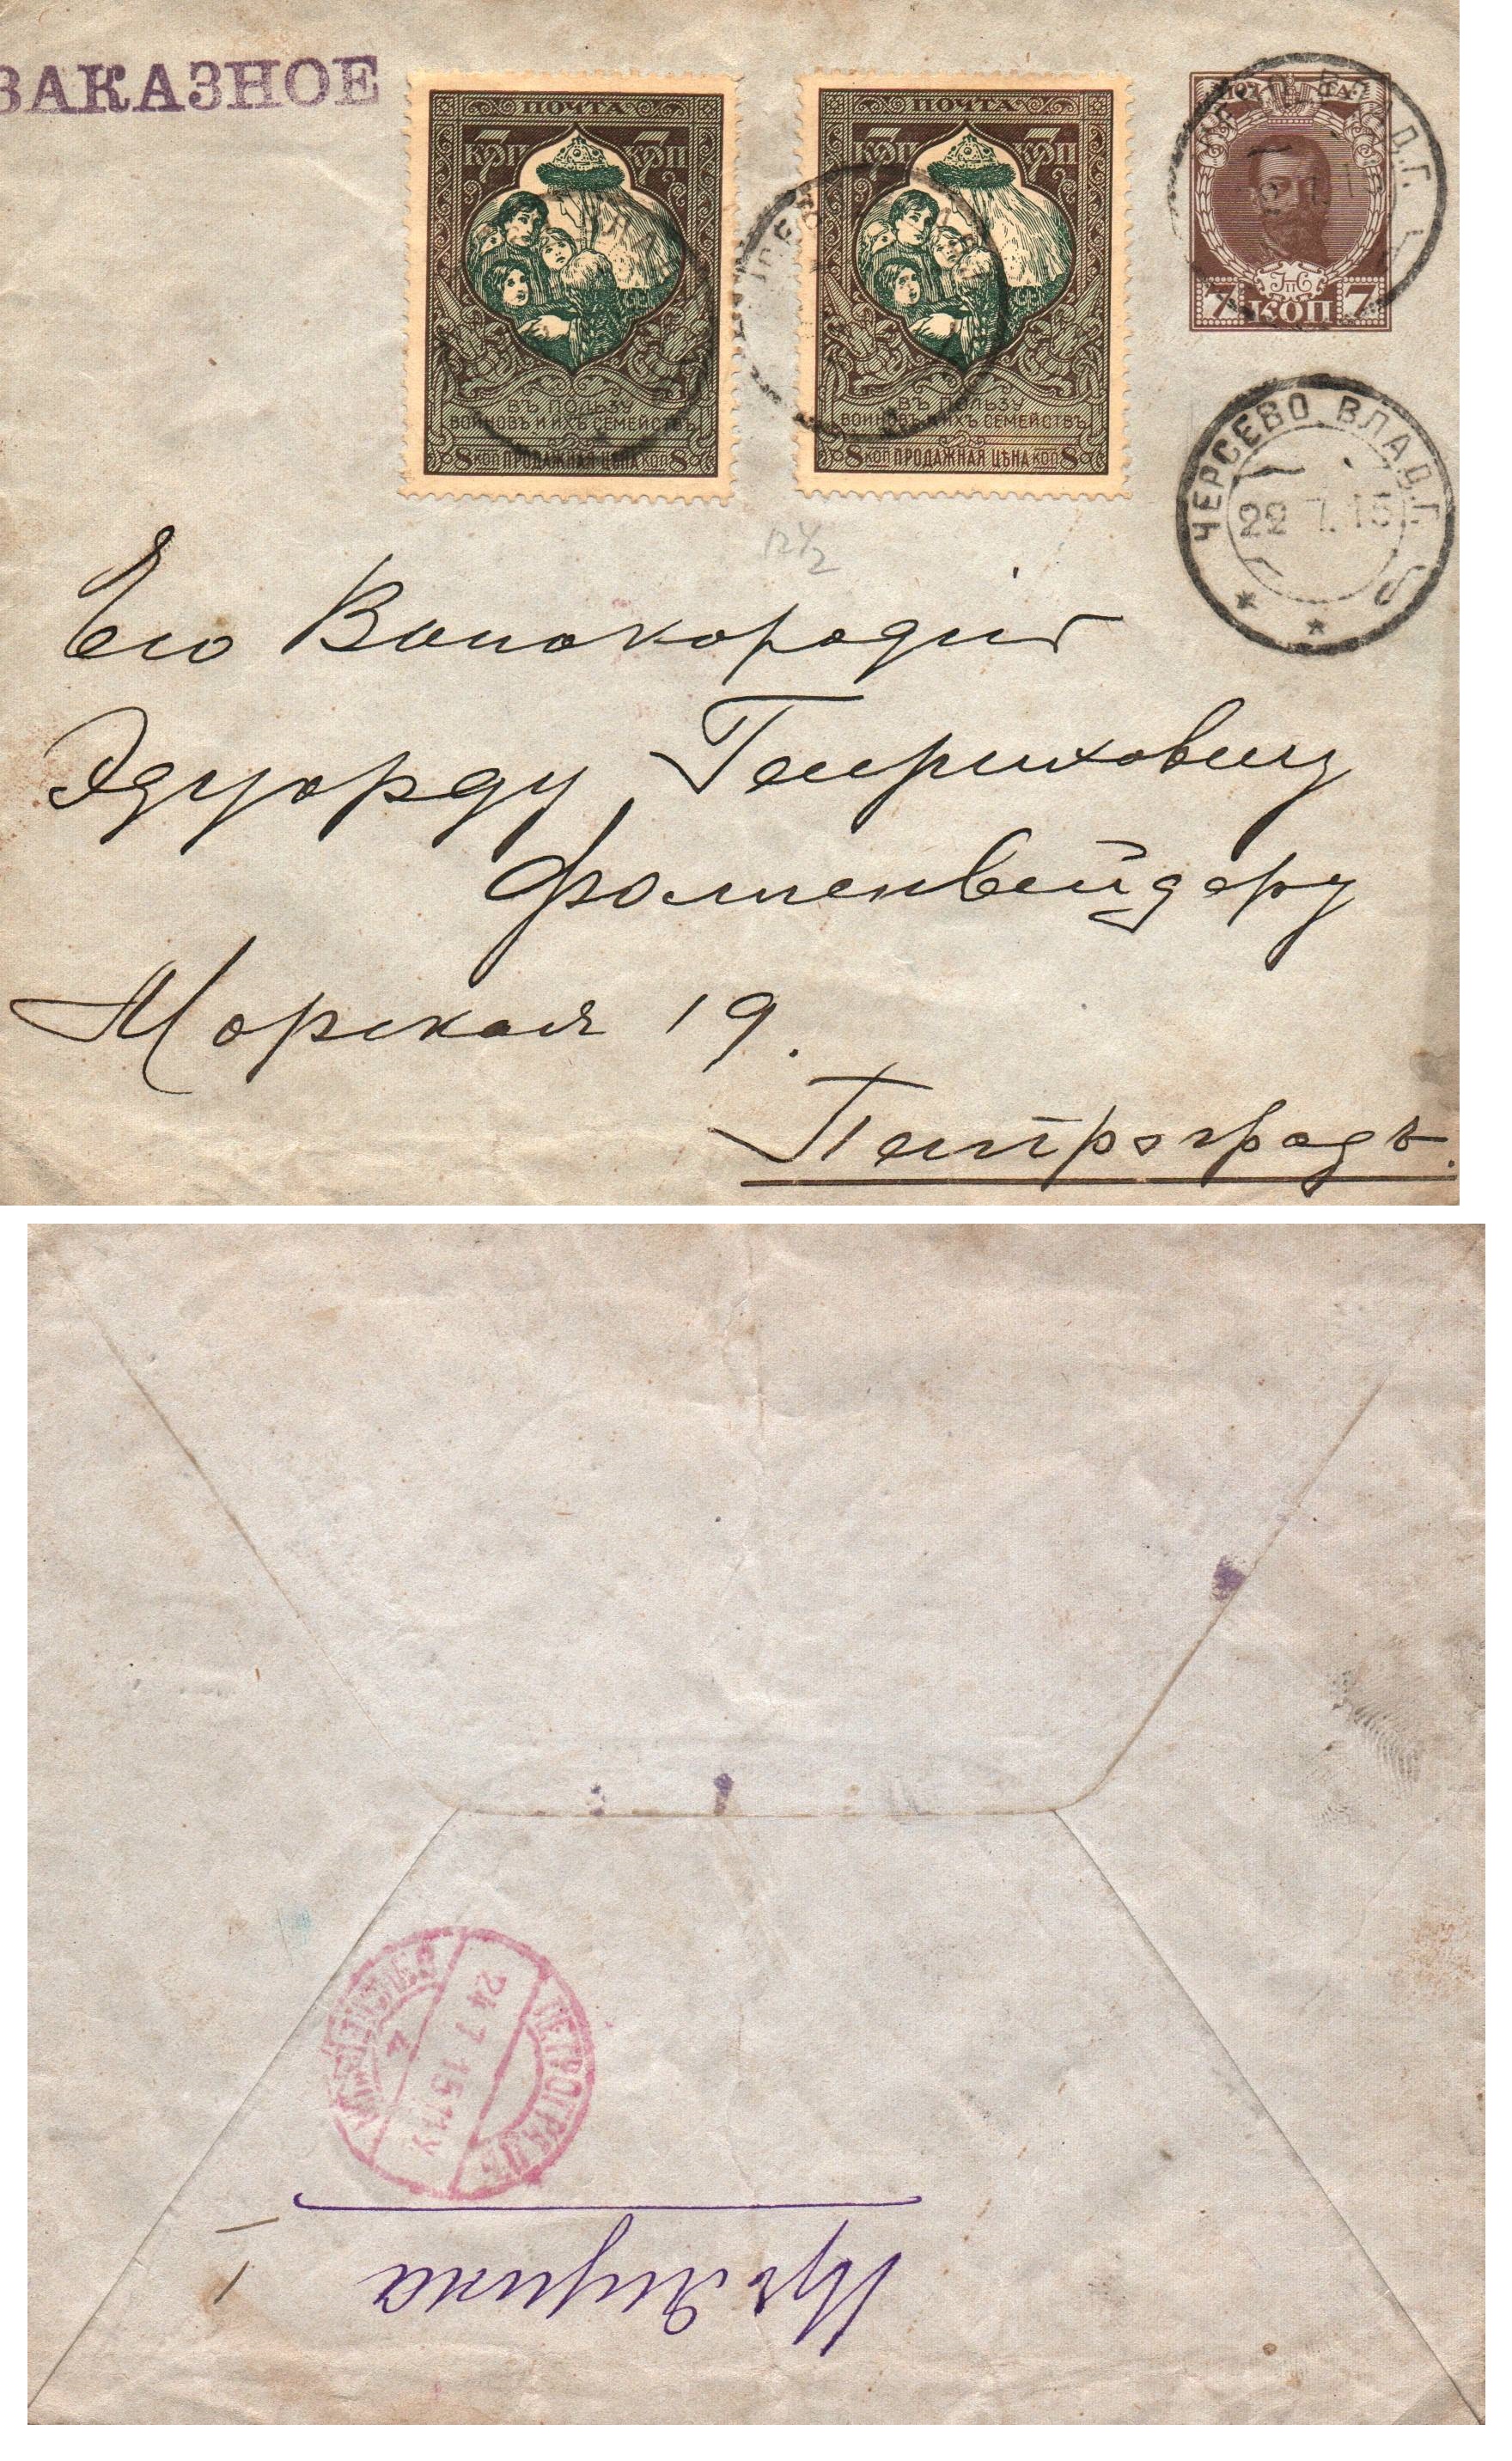 ЗАКАЗНОЕ
ПОЧТА
7 7
КОП КОП
ВЪ ПОЛЬЗУ
ВОИНОВЪ И ИХЪ СЕМЕЙСТВЪ
8 КОП ПРОДАЖНАЯ ЦѢНА КОП 8
ПОЧТА
7 7
КОП КОП
ВЪ ПОЛЬЗУ
ВОИНОВЪ И ИХЪ СЕМЕЙСТВЪ
8 КОП ПРОДАЖНАЯ ЦѢНА КОП 8
7 КОП 7
ЧЕРСЕВО ВЛАД.Г.
22 7.15
12½
Его Высокородію
Эдуарду Генриховичу
Фаленвейдеру
Морская 19.
Петроградъ.
ПЕТРОГРАДЪ
24 7 15
Яицына